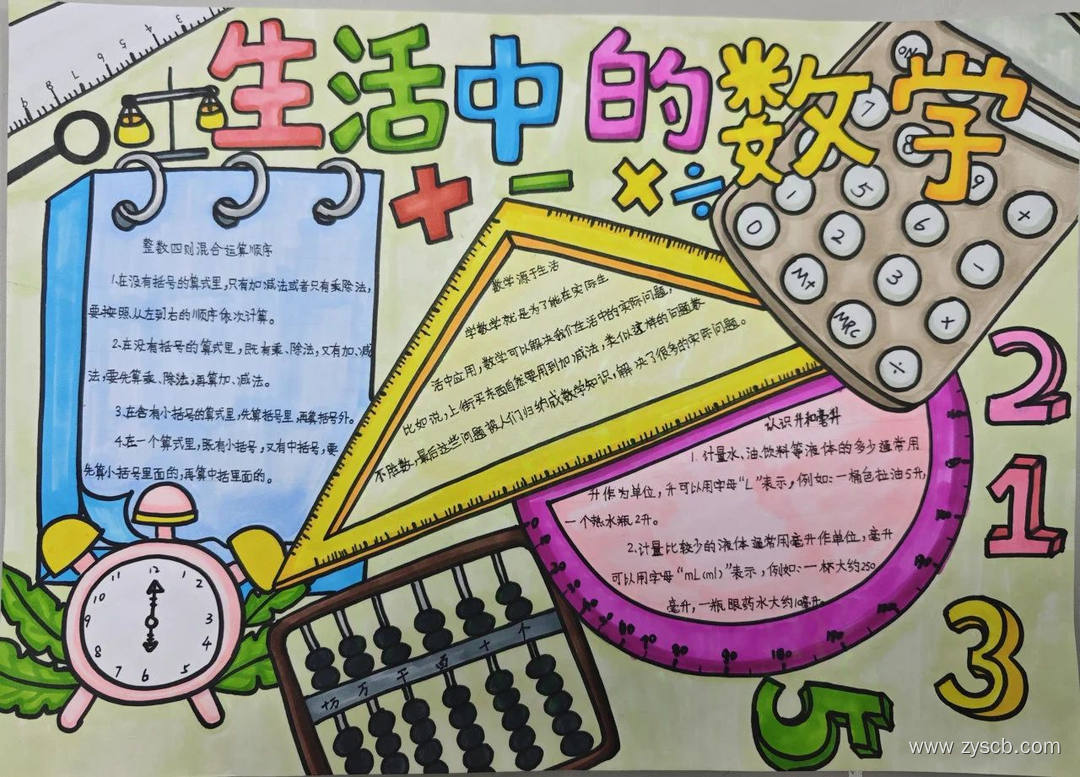 生活中的数学
整数四则混合运算顺序
1.在没有括号的算式里,只有加减法或者只有乘除法,
要按照从左到右的顺序依次计算。
2.在没有括号的算式里,既有乘、除法,又有加、减
法,要先算乘、除法,再算加、减法。
3.在含有小括号的算式里,先算括号里,再算括号外。
4.在一个算式里,既有小括号,又有中括号,要
先算小括号里面的,再算中括里面的。
数学源于生活
学数学就是为了能在实际生
活中应用,数学可以解决我们生活中的实际问题,
比如说,上街买东西自然要用到加减法,类似这样的问题数
不胜数,最后这些问题被人们归纳成数学知识,解决了很多的实际问题。
认识升和毫升
1.计量水、油、饮料等液体的多少通常用
升作为单位,升可以用字母“L”表示,例如:一桶色拉油5升,
一个热水瓶2升。
2.计量比较少的液体通常用毫升作单位,毫升
可以用字母“mL(ml)”表示,例如:一杯大约250
毫升,一瓶眼药水大约10毫升。
+ − × ÷
ON
7
8
9
1
5
6
+
0
2
3
−
M+
MRC
×
÷
2
1
3
5
12
1
2
3
4
5
6
7
8
9
10
11
十万 万 千 百 十 个
www.zyscb.com